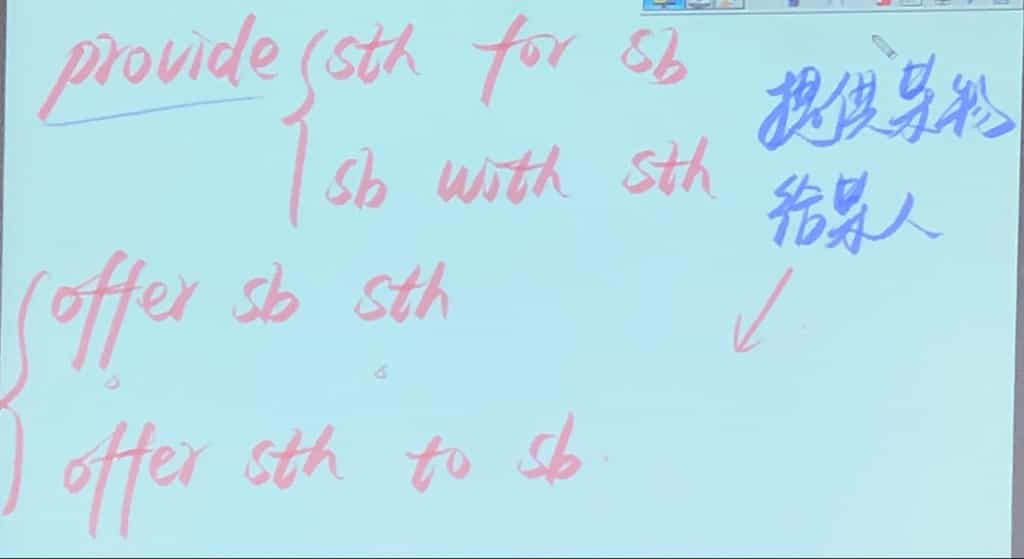 provide sth for sb
sb with sth
提供某物
给某人
offer sb sth
offer sth to sb